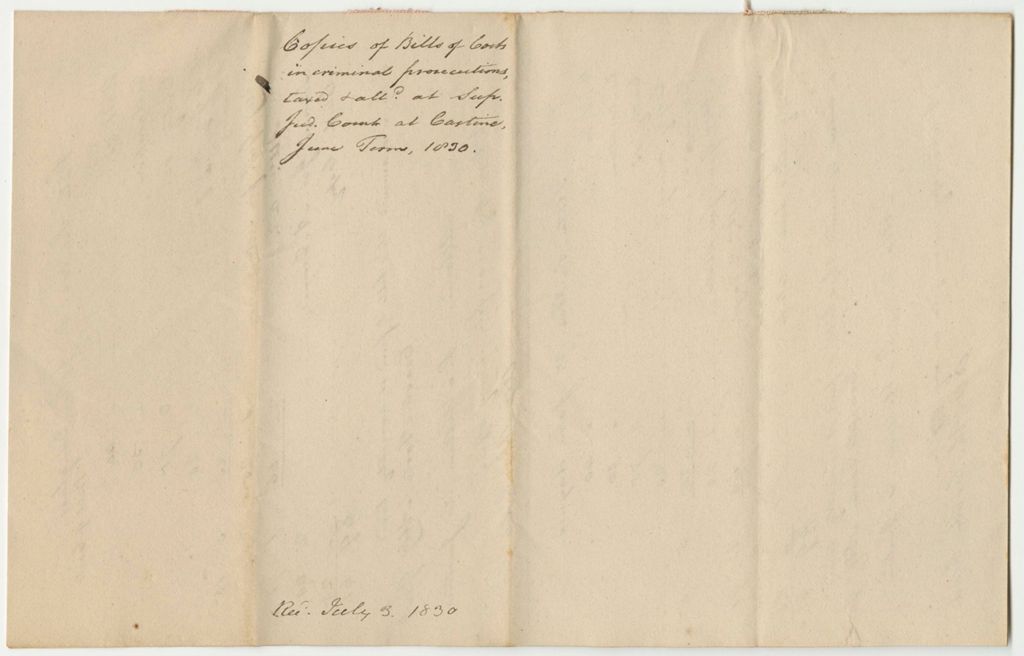 Copies of Bills of Costs
in criminal prosecutions,
taxed & all.d at Sup.
Jud. Court at Castine,
June Term, 1830.
Rec. July 3. 1830